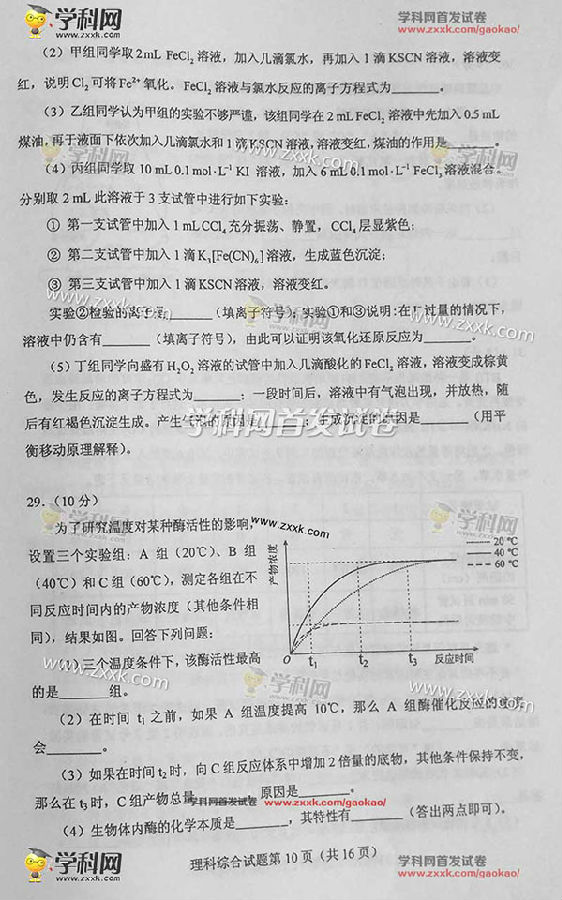 学科网
www.zxxk.com
学科网首发试卷
www.zxxk.com/gaokao/
（2）甲组同学取2mL FeCl₂ 溶液，加入几滴氯水，再加入 1 滴 KSCN 溶液，溶液变
红，说明 Cl₂ 可将 Fe²⁺ 氧化。FeCl₂ 溶液与氯水反应的离子方程式为______。
（3）乙组同学认为甲组的实验不够严谨，该组同学在 2 mL FeCl₂ 溶液中先加入 0.5 mL
煤油，再于液面下依次加入几滴氯水和 1 滴 KSCN 溶液，溶液变红，煤油的作用是______。
学科网
（4）丙组同学取 10 mL 0.1 mol·L⁻¹ KI 溶液，加入 6 mL 0.1 mol·L⁻¹ FeCl₃ 溶液混合。
分别取 2 mL 此溶液于 3 支试管中进行如下实验：
① 第一支试管中加入 1 mL CCl₄ 充分振荡、静置，CCl₄ 层显紫色；
② 第二支试管中加入 1 滴 K₃[Fe(CN)₆] 溶液，生成蓝色沉淀；
③ 第三支试管中加入 1 滴 KSCN 溶液，溶液变红。
www.zxxk.com
实验②检验的离子是______（填离子符号）；实验①和③说明：在I⁻过量的情况下，
溶液中仍含有______（填离子符号），由此可以证明该氧化还原反应为______。
（5）丁组同学向盛有 H₂O₂ 溶液的试管中加入几滴酸化的 FeCl₂ 溶液，溶液变成棕黄
色，发生反应的离子方程式为______；一段时间后，溶液中有气泡出现，并放热，随
后有红褐色沉淀生成。产生气泡的原因是______；生成沉淀的原因是______（用平
学科网首发试卷
衡移动原理解释）。
29.（10 分）
为了研究温度对某种酶活性的影响，
设置三个实验组：A 组（20℃）、B 组
（40℃）和 C 组（60℃），测定各组在不
同反应时间内的产物浓度（其他条件相
同），结果如图。回答下列问题：
产物浓度
20 ℃
40 ℃
60 ℃
O t₁ t₂ t₃ 反应时间
（1）三个温度条件下，该酶活性最高
的是______组。
（2）在时间 t₁ 之前，如果 A 组温度提高 10℃，那么 A 组酶催化反应的速度
会______。
（3）如果在时间 t₂ 时，向 C 组反应体系中增加 2 倍量的底物，其他条件保持不变，
那么在 t₃ 时，C 组产物总量______，原因是______。
学科网首发试卷 www.zxxk.com/gaokao/
（4）生物体内酶的化学本质是______，其特性有______（答出两点即可）。
理科综合试题第 10 页（共 16 页）
学科网
www.zxxk.com
学科网首发试卷
www.zxxk.com/gaokao/